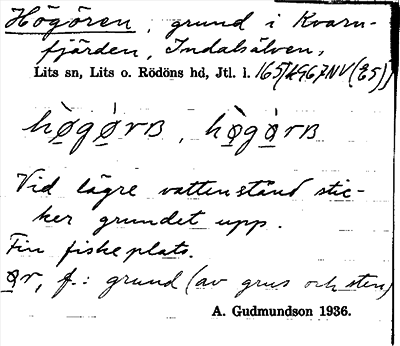 Högören, grund i Kvarn-
fjärden, Indalsälven,
Lits sn, Lits o. Rödöns hd, Jtl. l.
hògó̀rʙ, hò̀gò̀rʙ
Vid lägre vattenstånd stic-
ker grundet upp.
Fin fiskeplats.
ør, f.: grund (av grus och sten)
A. Gudmundson 1936.